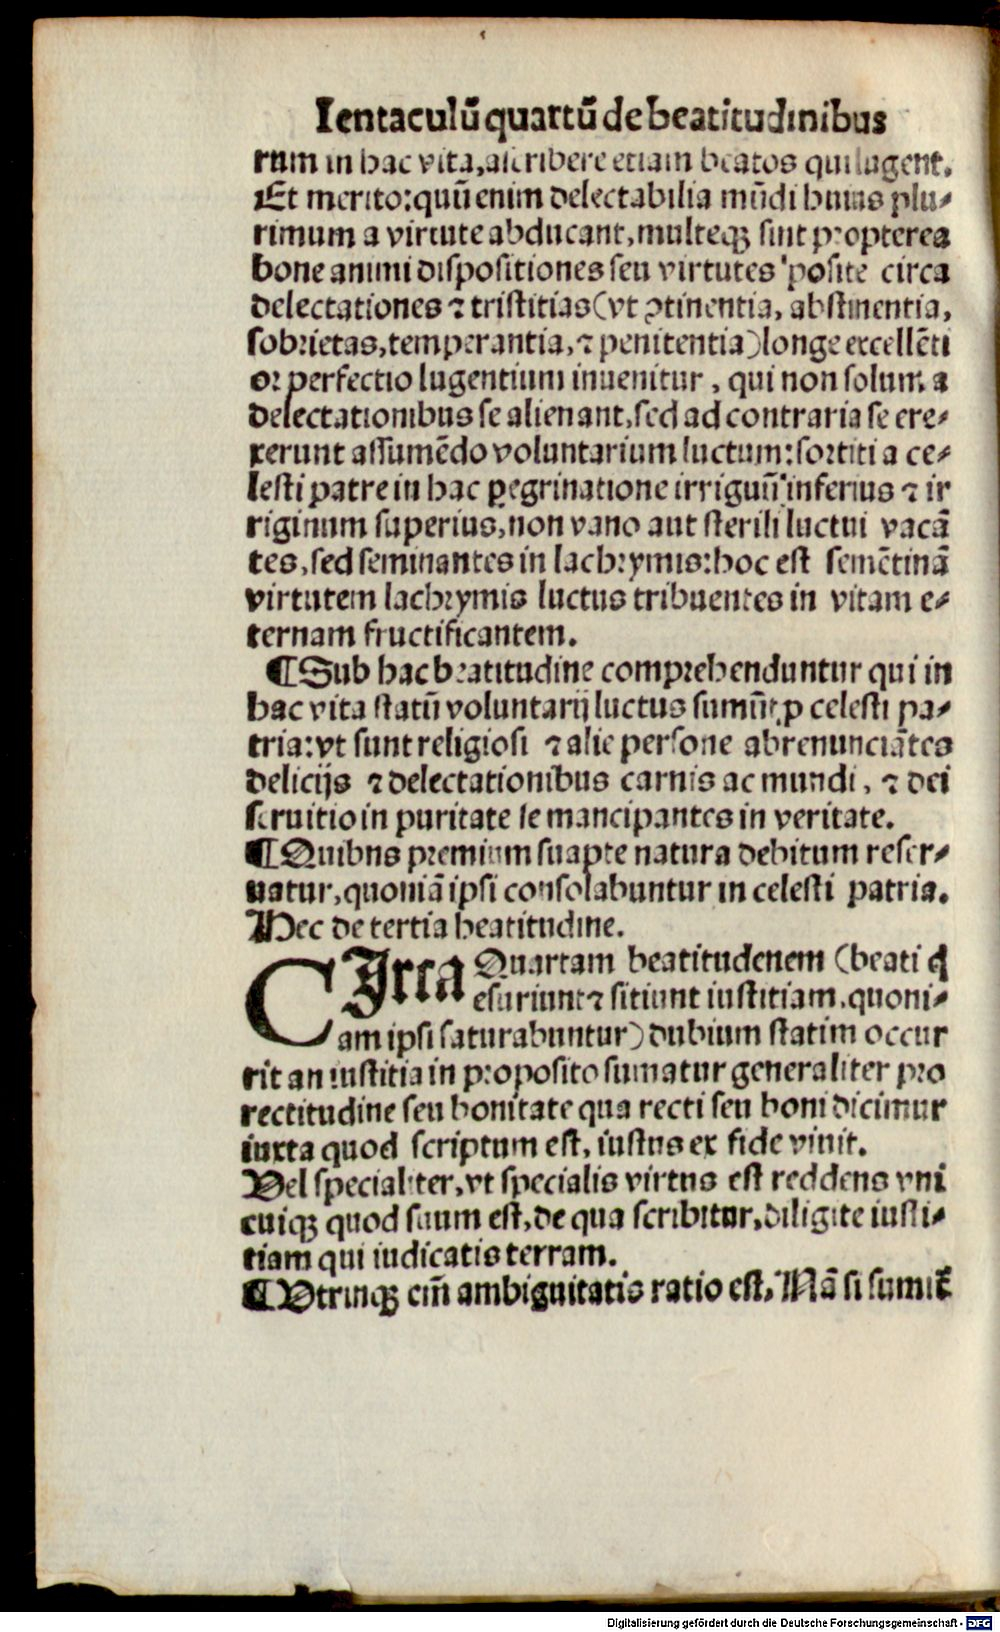 Ientaculũ quartũ de beatitudinibus
rum in hac vita, ascribere etiam beatos qui lugent.
Et merito: quũ enim delectabilia mũdi huius plu-
rimum a virtute abducant, multeqꝫ sint propterea
bone animi dispositiones seu virtutes posite circa
delectationes ⁊ tristitias (vt ꝯtinentia, abstinentia,
sobrietas, temperantia, ⁊ penitentia) longe excellẽti
or perfectio lugentium inuenitur, qui non solum a
delectationibus se alienant, sed ad contraria se ere-
xerunt assumẽdo voluntarium luctum: sortiti a ce-
lesti patre in hac ꝑegrinatione irriguũ inferius ⁊ ir
riguum superius, non vano aut sterili luctui vacã
tes, sed seminantes in lachrymis: hoc est semẽtinã
virtutem lachrymis luctus tribuentes in vitam e-
ternam fructificantem.
¶ Sub hac beatitudine comprehenduntur qui in
hac vita statũ voluntarij luctus sumũt ꝓ celesti pa-
tria: vt sunt religiosi ⁊ alie persone abrenunciãtes
delicijs ⁊ delectationibus carnis ac mundi, ⁊ dei
seruitio in puritate se mancipantes in veritate.
¶ Quibus premium suapte natura debitum reser-
uatur, quoniã ipsi consolabuntur in celesti patria.
Hec de tertia beatitudine.
CIrca Quartam beatitudenem (beati q̃
esuriunt ⁊ sitiunt iustitiam, quoni-
am ipsi saturabuntur) dubium statim occur
rit an iustitia in proposito sumatur generaliter pro
rectitudine seu bonitate qua recti seu boni dicimur
iuxta quod scriptum est, iustus ex fide viuit.
Vel specialiter, vt specialis virtus est reddens vni
cuiqꝫ quod suum est, de qua scribitur, diligite iusti-
tiam qui iudicatis terram.
¶ Vtrinqꝫ em̃ ambiguitatis ratio est. Nã si sumit̃
Digitalisierung gefördert durch die Deutsche Forschungsgemeinschaft - DFG